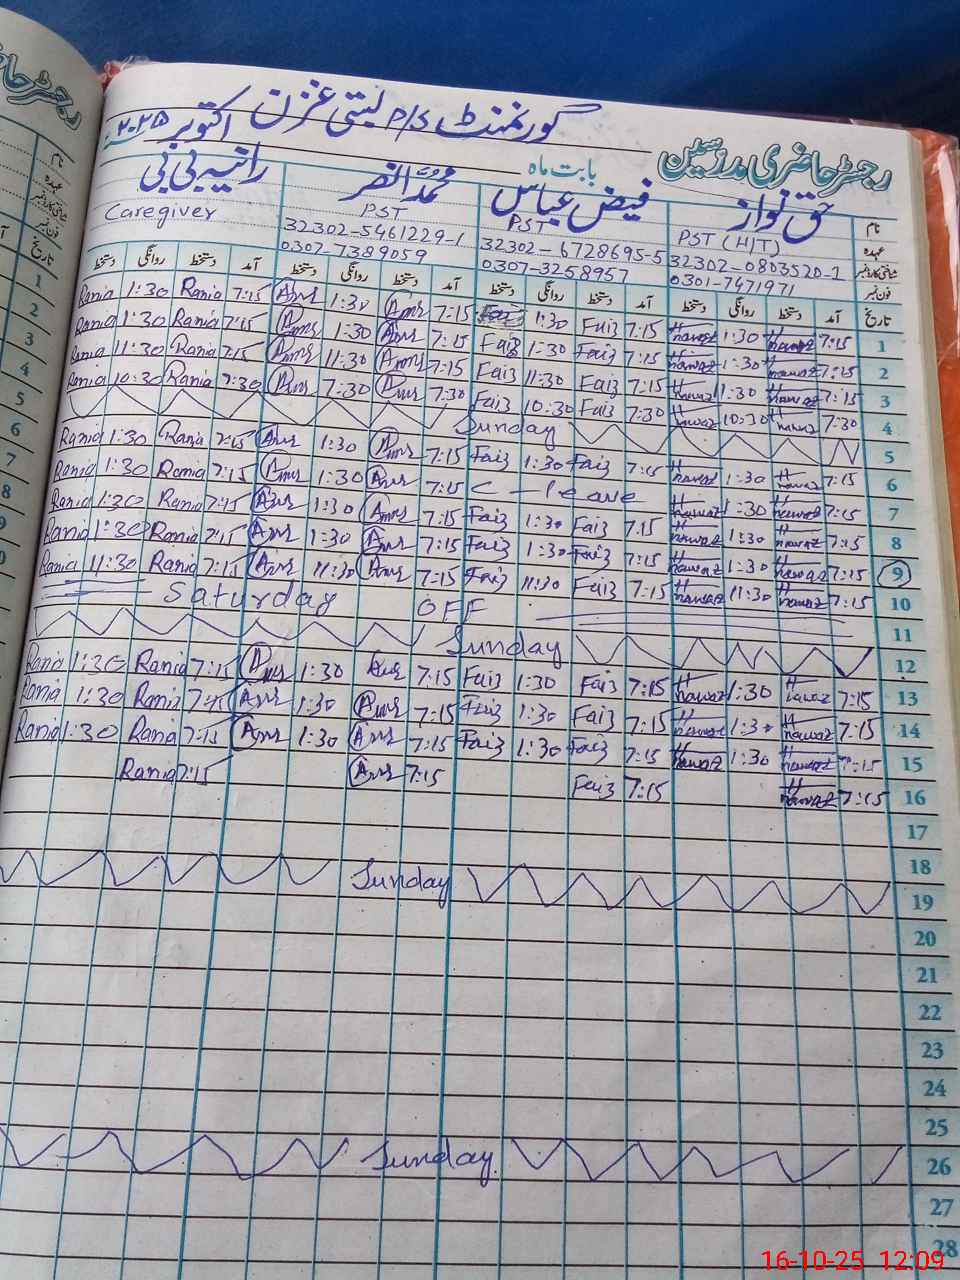 گورنمنٹ P/S بستی غزن اکتوبر ۲۰۲۵
رجسٹر حاضری مدرسین بابت ماہ
نام حق نواز فیض عباس محمد النصر رانیہ بی بی
عہدہ PST (H/T) PST PST Caregiver
شناختی کارڈ نمبر 32302-0803520-1 32302-6728695-5 32302-5461229-1
فون نمبر 0301-7471971 0307-3258957 0307-7389059
تاریخ آمد دستخط روانگی دستخط آمد دستخط روانگی دستخط آمد دستخط روانگی دستخط آمد دستخط روانگی دستخط
Rania 1:30 Rania 7:15 Ans 1:30 Ans 7:15 Faiz 1:30 Faiz 7:15 Hawaz 1:30 Hawaz 7:15 1
Rania 1:30 Rania 7:15 Ans 1:30 Ans 7:15 Faiz 1:30 Faiz 7:15 Hawaz 1:30 Hawaz 7:15 2
Rania 11:30 Rania 7:15 Ans 11:30 Ans 7:15 Faiz 11:30 Faiz 7:15 Hawaz 11:30 Hawaz 7:15 3
Rania 10:30 Rania 7:30 Ans 7:30 Ans 7:30 Faiz 10:30 Faiz 7:30 Hawaz 10:30 Hawaz 7:30 4
Sunday 5
Rania 1:30 Rania 7:15 Ans 1:30 Ans 7:15 Faiz 1:30 Faiz 7:15 Hawaz 1:30 Hawaz 7:15 6
Rania 1:30 Rania 7:15 Ans 1:30 Ans 7:15 C - leave Hawaz 1:30 Hawaz 7:15 7
Rania 1:30 Rania 7:15 Ans 1:30 Ans 7:15 Faiz 1:30 Faiz 7:15 Hawaz 1:30 Hawaz 7:15 8
Rania 1:30 Rania 7:15 Ans 1:30 Ans 7:15 Faiz 1:30 Faiz 7:15 Hawaz 1:30 Hawaz 7:15 9
Rania 11:30 Rania 7:15 Ans 11:30 Ans 7:15 Faiz 11:30 Faiz 7:15 Hawaz 11:30 Hawaz 7:15 10
Saturday OFF 11
Sunday 12
Rania 1:30 Rania 7:15 Ans 1:30 Ans 7:15 Faiz 1:30 Faiz 7:15 Hawaz 1:30 Hawaz 7:15 13
Rania 1:30 Rania 7:15 Ans 1:30 Ans 7:15 Faiz 1:30 Faiz 7:15 Hawaz 1:30 Hawaz 7:15 14
Rania 1:30 Rania 7:15 Ans 1:30 Ans 7:15 Faiz 1:30 Faiz 7:15 Hawaz 1:30 Hawaz 7:15 15
Rania 7:15 Ans 7:15 Faiz 7:15 Hawaz 7:15 16
17
18
Sunday 19
20
21
22
23
24
25
Sunday 26
27
28
16-10-25 12:09